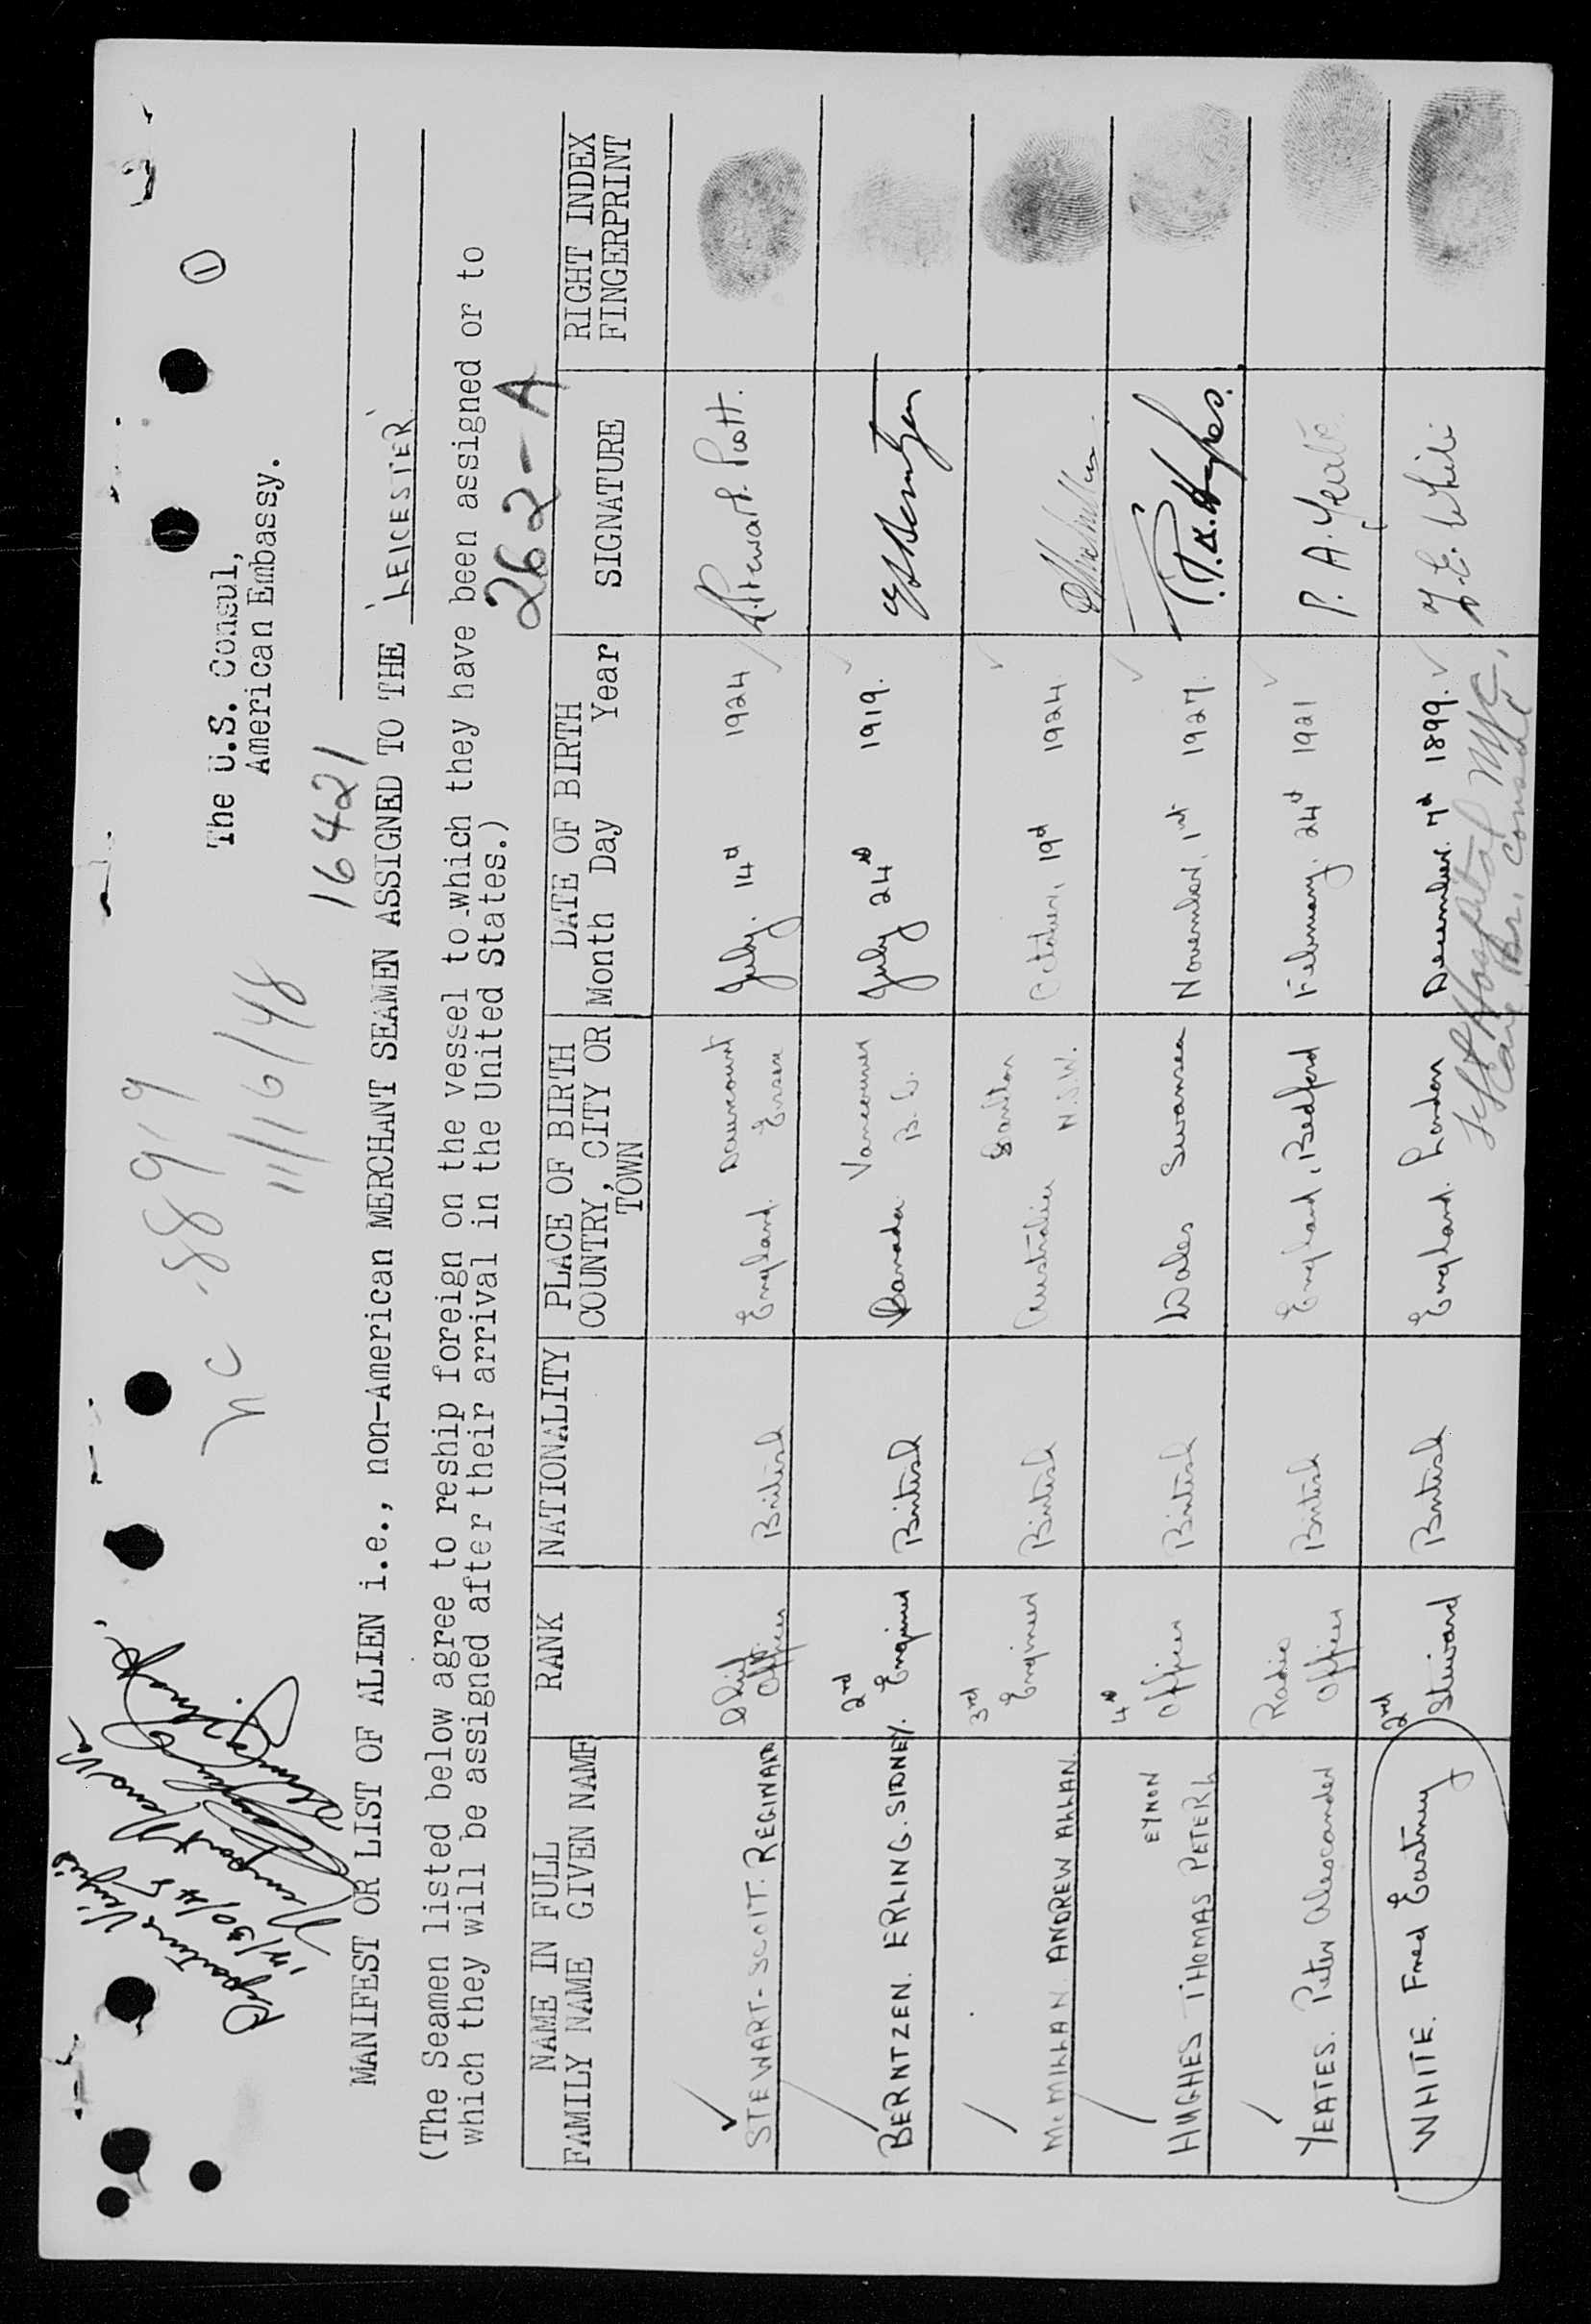 ①
The U.S. Consul,
American Embassy.
nc 8919
11/16/48
16421
MANIFEST OR LIST OF ALIEN i.e., non-American MERCHANT SEAMEN ASSIGNED TO THE 'LEICESTER'
(The Seamen listed below agree to reship foreign on the vessel to which they have been assigned or to
which they will be assigned after their arrival in the United States.)
262-A
NAME IN FULL RANK NATIONALITY PLACE OF BIRTH DATE OF BIRTH SIGNATURE RIGHT INDEX
FAMILY NAME GIVEN NAME COUNTRY, CITY OR Month Day Year FINGERPRINT
TOWN
STEWART-SCOTT. REGINALD Chief Officer British England. Essex July. 14th 1924 R. Stewart-Scott.
BERNTZEN. ERLING. SIDNEY. 2nd Engineer British Canada Vancouver B.C. July 24th 1919. Berntzen
McMILLAN. ANDREW ALLAN. 3rd Engineer British Australia N.S.W. October, 19th 1924.
HUGHES THOMAS PETER EYNON 4th Officer British Wales Swansea November, 1st 1927. Hughes.
YEATES. Peter Alescander Radio Officer British England, Bedford February. 24th 1921 P. A. Yeates
WHITE. Fred Eastney 2nd Steward British England. London December. 7th 1899. F. E. White
Left Hospital NYC,
Care Br. Consul